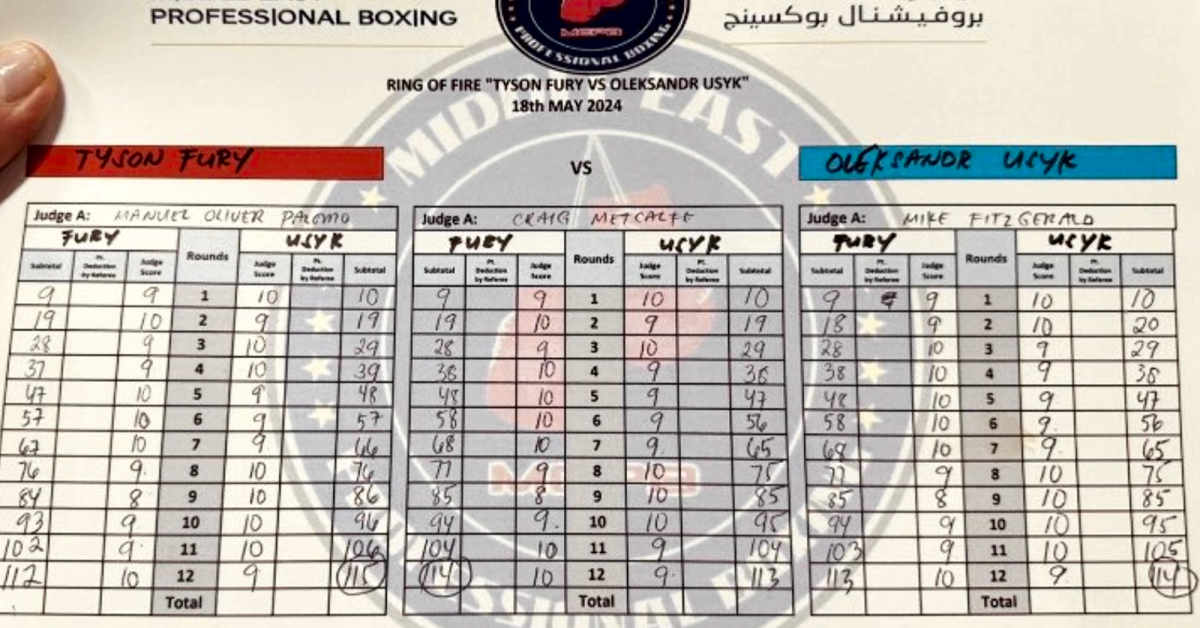 PROFESSIONAL BOXING
بروفيشنال بوكسينج
MEPB
PROFESSIONAL BOXING
RING OF FIRE "TYSON FURY VS OLEKSANDR USYK"
18th MAY 2024
MIDDLE EAST
TYSON FURY VS OLEKSANDR USYK
Judge A: MANUEL OLIVER PALOMO Judge A: CRAIG METCALFE Judge A: MIKE FITZGERALD
FURY USYK FURY USYK FURY USYK
Subtotal Pt. Deduction by Referee Judge Score Rounds Judge Score Pt. Deduction by Referee Subtotal Subtotal Pt. Deduction by Referee Judge Score Rounds Judge Score Pt. Deduction by Referee Subtotal Subtotal Pt. Deduction by Referee Judge Score Rounds Judge Score Pt. Deduction by Referee Subtotal
9 9 1 10 10 9 9 1 10 10 9 9 1 10 10
19 10 2 9 19 19 10 2 9 19 18 9 2 10 20
28 9 3 10 29 28 9 3 10 29 28 10 3 9 29
37 9 4 10 39 38 10 4 9 38 38 10 4 9 38
47 10 5 9 48 48 10 5 9 47 48 10 5 9 47
57 10 6 9 57 58 10 6 9 56 58 10 6 9 56
67 10 7 9 66 68 10 7 9 65 68 10 7 9 65
76 9 8 10 76 77 9 8 10 75 77 9 8 10 75
84 8 9 10 86 85 8 9 10 85 85 8 9 10 85
93 9 10 10 96 94 9 10 10 95 94 9 10 10 95
102 9 11 10 106 104 10 11 9 104 103 9 11 10 105
112 10 12 9 115 114 10 12 9 113 113 10 12 9 114
Total Total Total
MEPB
PROFESSIONAL BOXING